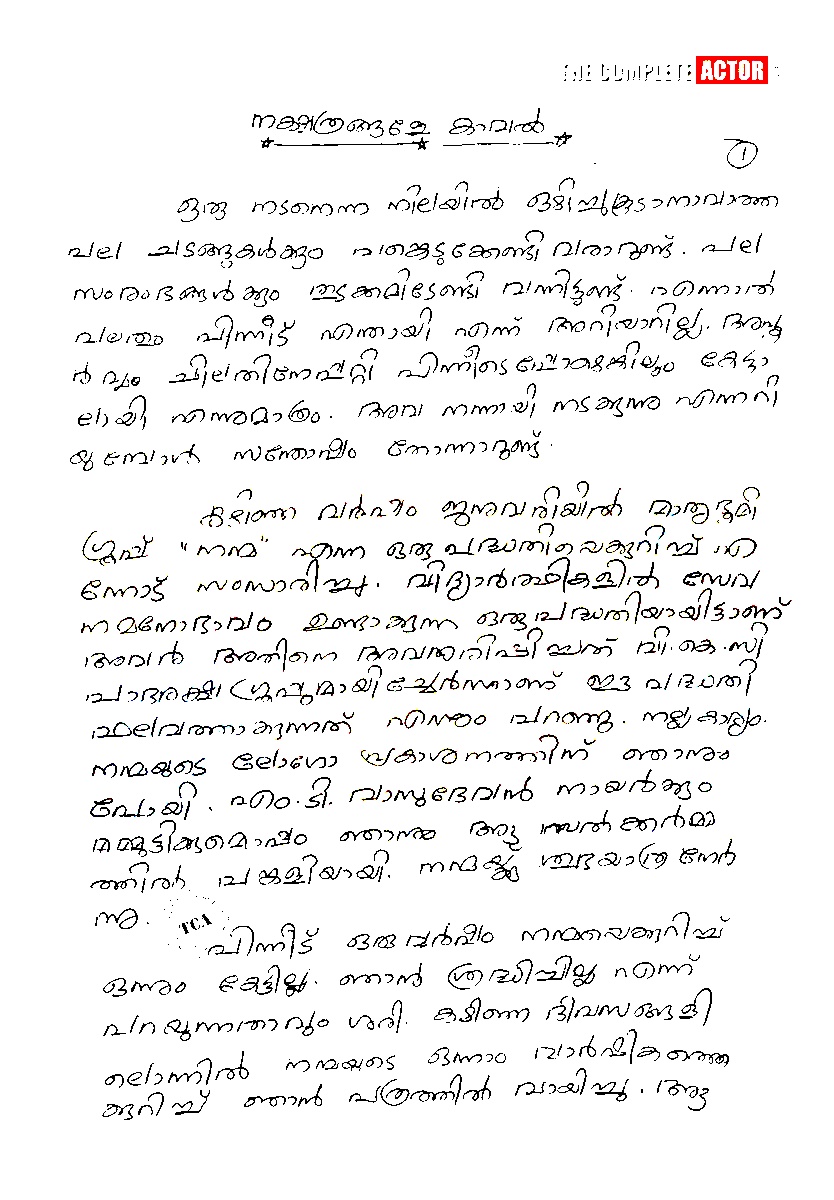 THE COMPLETE ACTOR
നക്ഷത്രങ്ങളേ കാവൽ
1
ഒരു നടനെന്ന നിലയിൽ ഒഴിച്ചുകൂടാനാവാത്ത
പല ചടങ്ങുകൾക്കും പങ്കെടുക്കേണ്ടി വരാറുണ്ട്. പല
സംരംഭങ്ങൾക്കും തുടക്കമിടേണ്ടി വന്നിട്ടുണ്ട്. എന്നാൽ
പലതും പിന്നീട് എന്തായി എന്ന് അറിയാറില്ല. അപൂ
ർവ്വം ചിലതിനേപ്പറ്റി പിന്നീടെപ്പൊഴെങ്കിലും കേട്ടാ
ലായി എന്നുമാത്രം. അവ നന്നായി നടക്കുന്നു എന്നറി
യുമ്പോൾ സന്തോഷം തോന്നാറുണ്ട്.
കഴിഞ്ഞ വർഷം ജനുവരിയിൽ മാതൃഭൂമി
ഗ്രൂപ്പ് "നന്മ" എന്ന ഒരു പദ്ധതിയെക്കുറിച്ച് എ
ന്നോട് സംസാരിച്ചു. വിദ്യാർത്ഥികളിൽ സേവ
നമനോഭാവം ഉണ്ടാക്കുന്ന ഒരു പദ്ധതിയായിട്ടാണ്
അവർ അതിനെ അവതരിപ്പിച്ചത് വി.കെ.സി
പാദരക്ഷാ ഗ്രൂപ്പുമായി ചേർന്നാണ് ഈ പദ്ധതി
ഫലവത്താകുന്നത് എന്നും പറഞ്ഞു. നല്ല കാര്യം.
നന്മയുടെ ലോഗോ പ്രകാശനത്തിന് ഞാനും
പോയി. എം.ടി. വാസുദേവൻ നായർക്കും
മമ്മൂട്ടിക്കുമൊപ്പം ഞാനും ആ സൽക്കർമ്മ
ത്തിൽ പങ്കാളിയായി. നന്മയ്ക്കു ശുഭയാത്ര നേർ
ന്നു.
TCA
പിന്നീട് ഒരു വർഷം നന്മയെക്കുറിച്ച്
ഒന്നും കേട്ടില്ല. ഞാൻ ശ്രദ്ധിച്ചില്ല എന്ന്
പറയുന്നതാവും ശരി. കഴിഞ്ഞ ദിവസങ്ങളി
ലൊന്നിൽ നന്മയുടെ ഒന്നാം വാർഷികത്തെ
ക്കുറിച്ച് ഞാൻ പത്രത്തിൽ വായിച്ചു. ആ